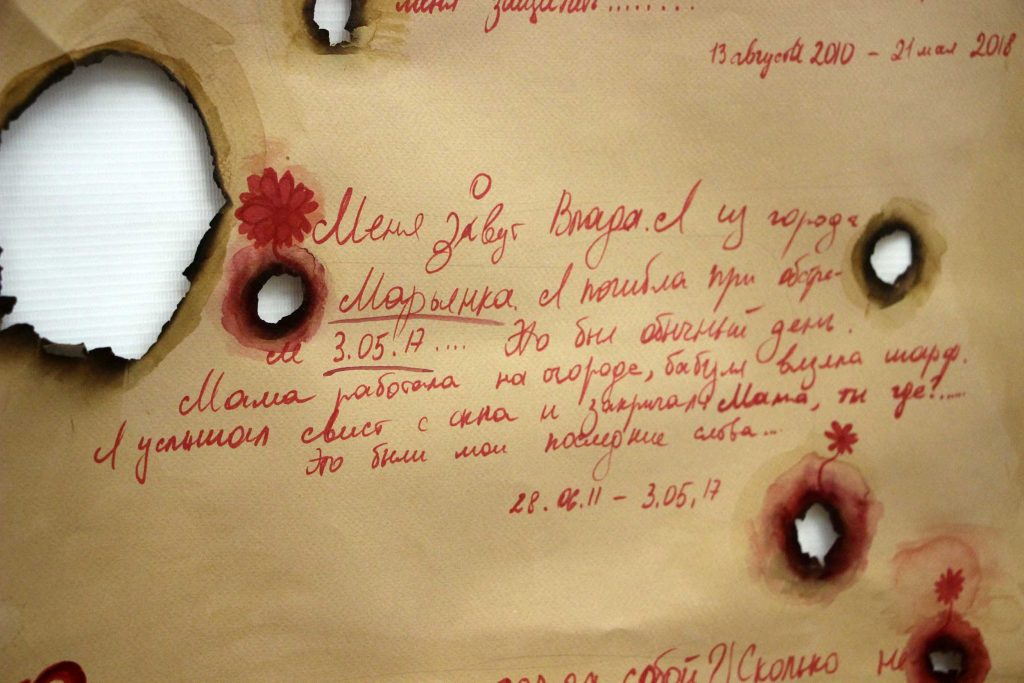 меня защитит........
13 августа 2010 - 21 мая 2018
Меня завут Влада. Я из города
Марьинка. Я погибла при обстре-
ле 3.05.17.... Это был обычный день.
Мама работала на огороде, бабуля вязала шарф.
Я услышал свист с окна и закричала Мама, ты где?.....
Это были мои последние слова...
28.06.11 - 3.05.17
собой?! Сколько не